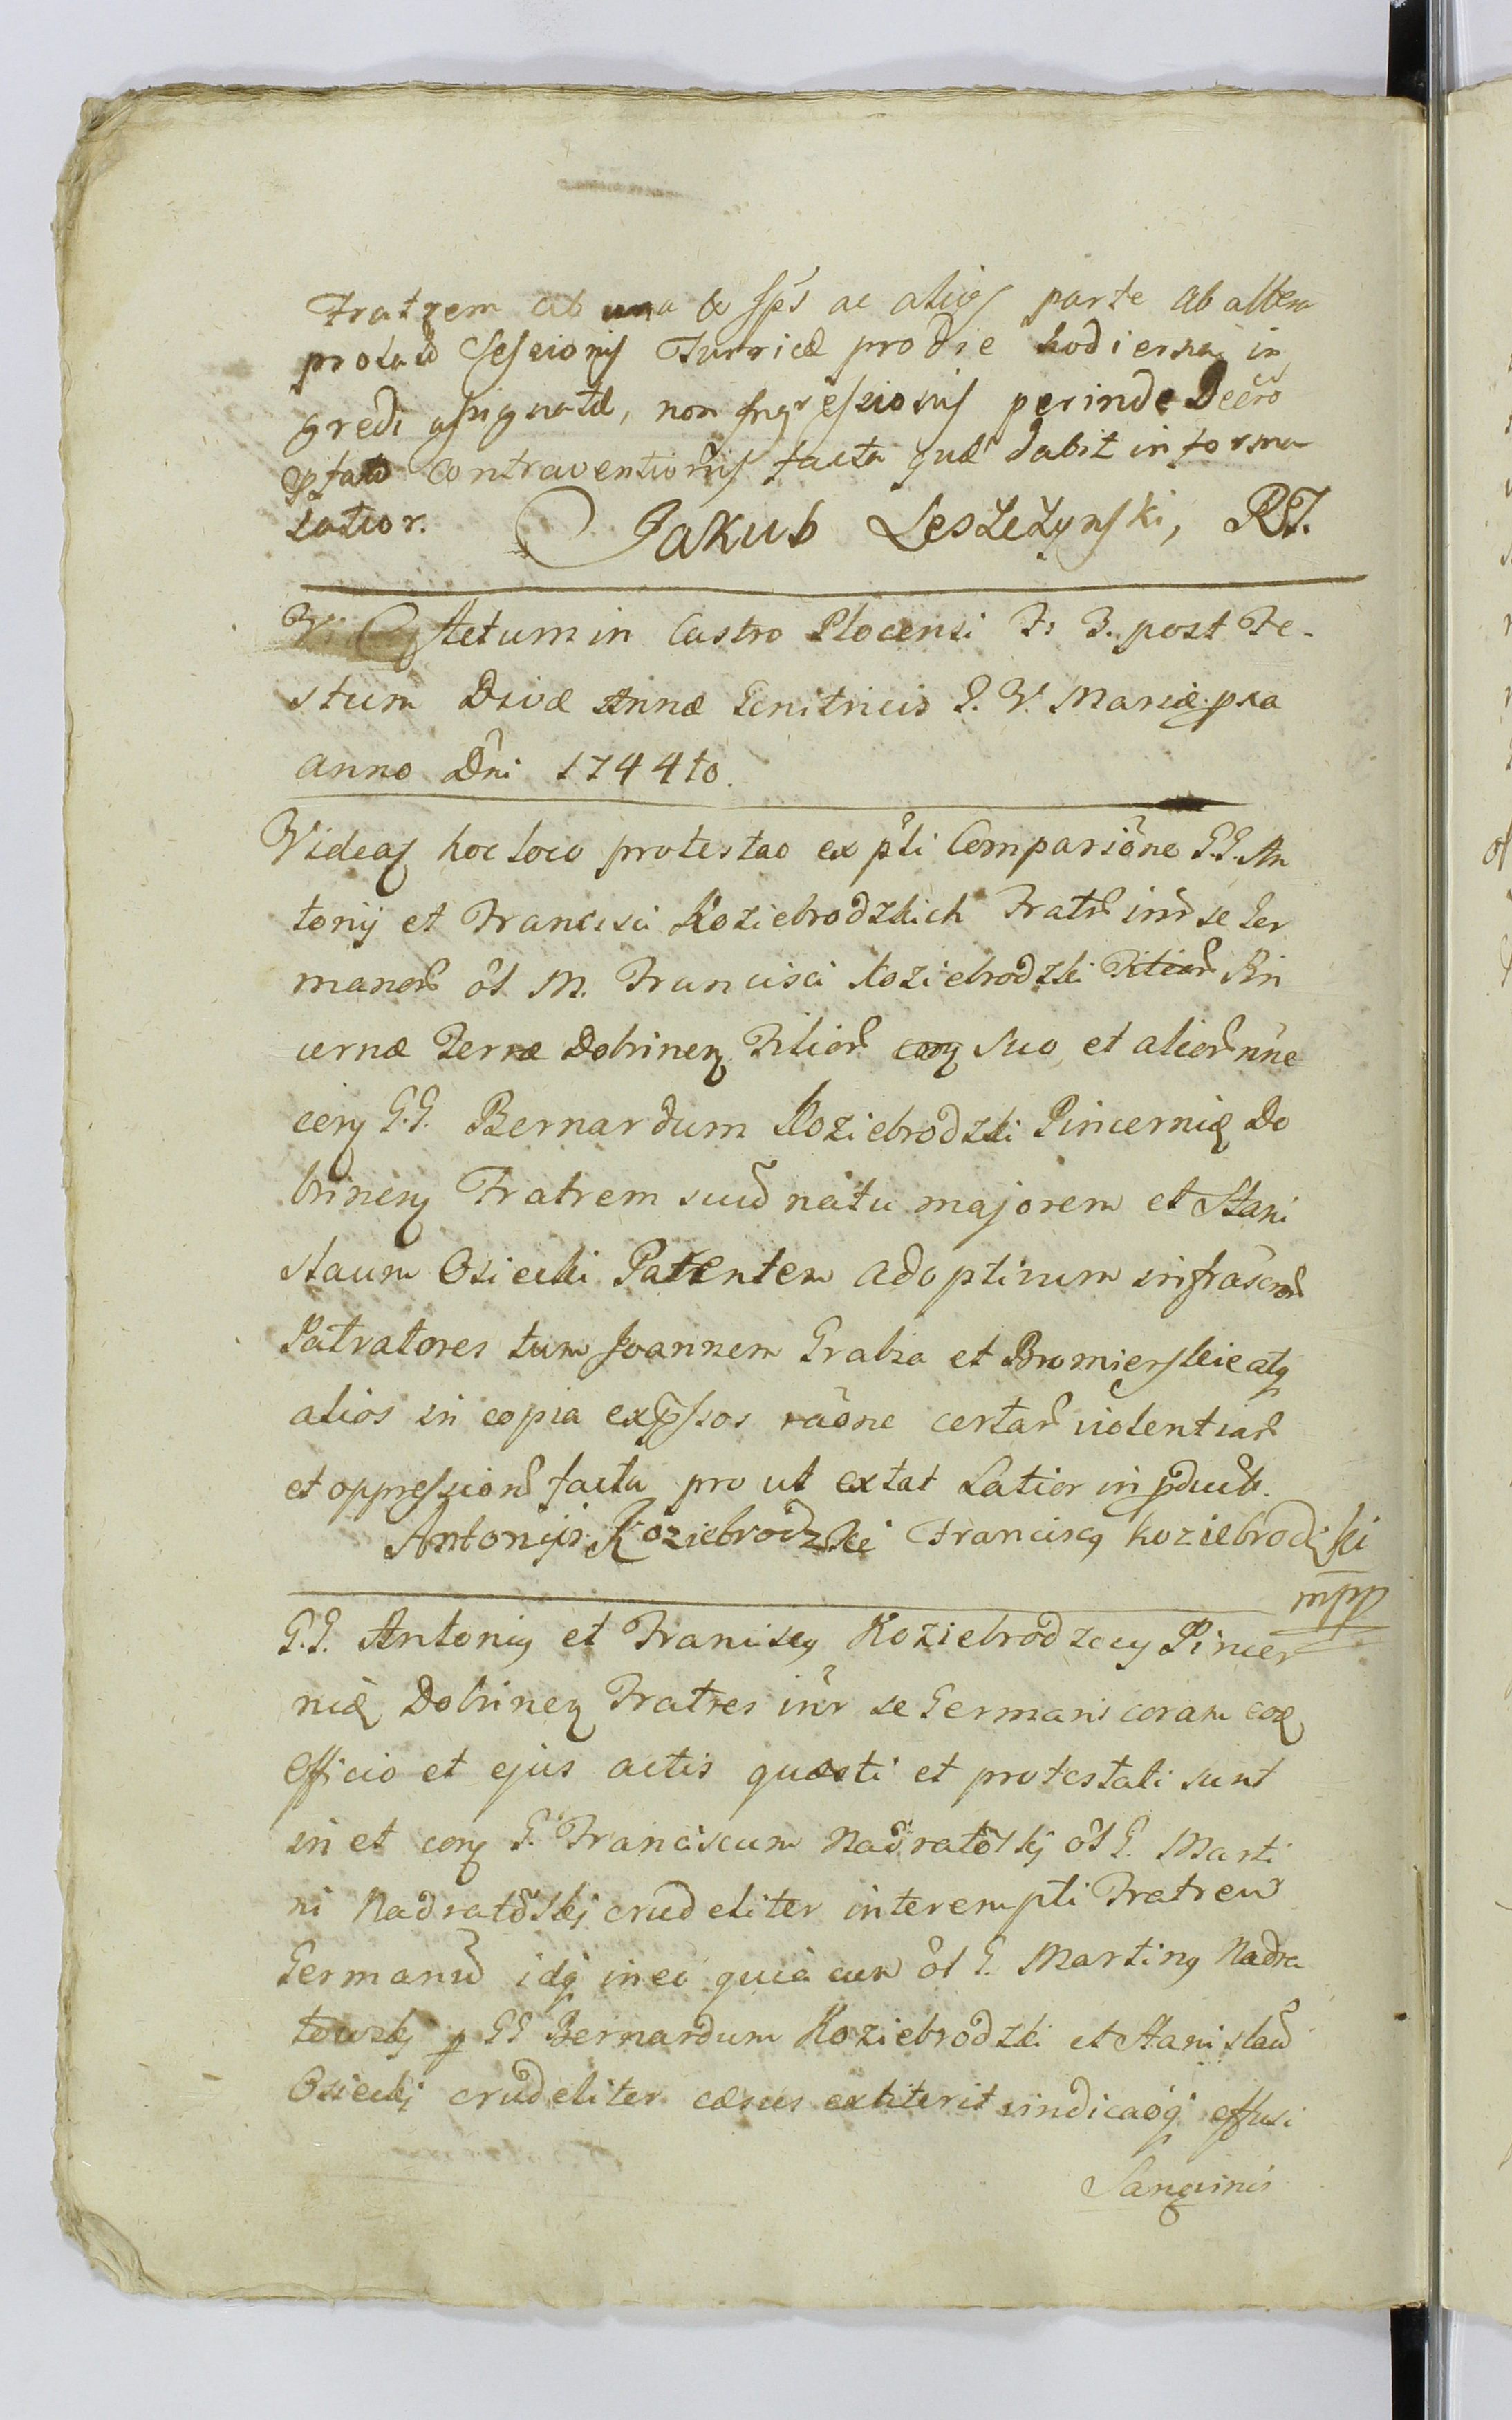 Fratrem ab una & sps ac aliis parte ab altera
prolatæ Sessionis Turricæ pro die hodierna in
gredi assignatæ, non Ingressionis perinde Decro
pstato contraventionis facta quæ dabit in forma
latior. Jakub Leszczynski, RJ.
Actum in Castro Plocensi F: 3. post Fe-
stum Divæ Annæ Genitricis B. V. Mariæ pxa
anno Dni 1744to.
Videas hoc loco protestao ex pli Compariõne G.G. An
tonij et Francisci Koziebrodzkich Fratr inr se Ger
manor ol M. Francisci Koziebrodzki Pin
cernæ Terræ Dobrinen Filior suo et alior nne
cong G.G. Bernardum Koziebrodzki Pincernidę Do
brinens Fratrem suũ natu majorem et Stani
slaum Osiecki Patrentem adoptivum infrascr
Patratores tum Joannem Grabia et Bromierskie atq
alios in copia expssos raõne certar violentiar
et oppression facta pro ut extat Latior in pduct.
Antonijs Koziebrodzki Franciscq Koziebrodzki
mpp
G.G. Antoniq et Franciscq Koziebrodzcy Pincer
nidæ Dobrinen Fratres inr se Germani coram eod
Officio et ejus actis quæsti et protestati sunt
in et cong G. Franciscum Nadratoskj ol G. Marti
ni Nadratoskj crudeliter interempti Fratrem
Germanũ idq in eo quia cum ol G. Martinq Nadra
towskj p GG Bernardum Koziebrodzki et Stanislaũ
Osieckj crudeliter cæsus extiterit vindicaoq effusi
Sanguinis